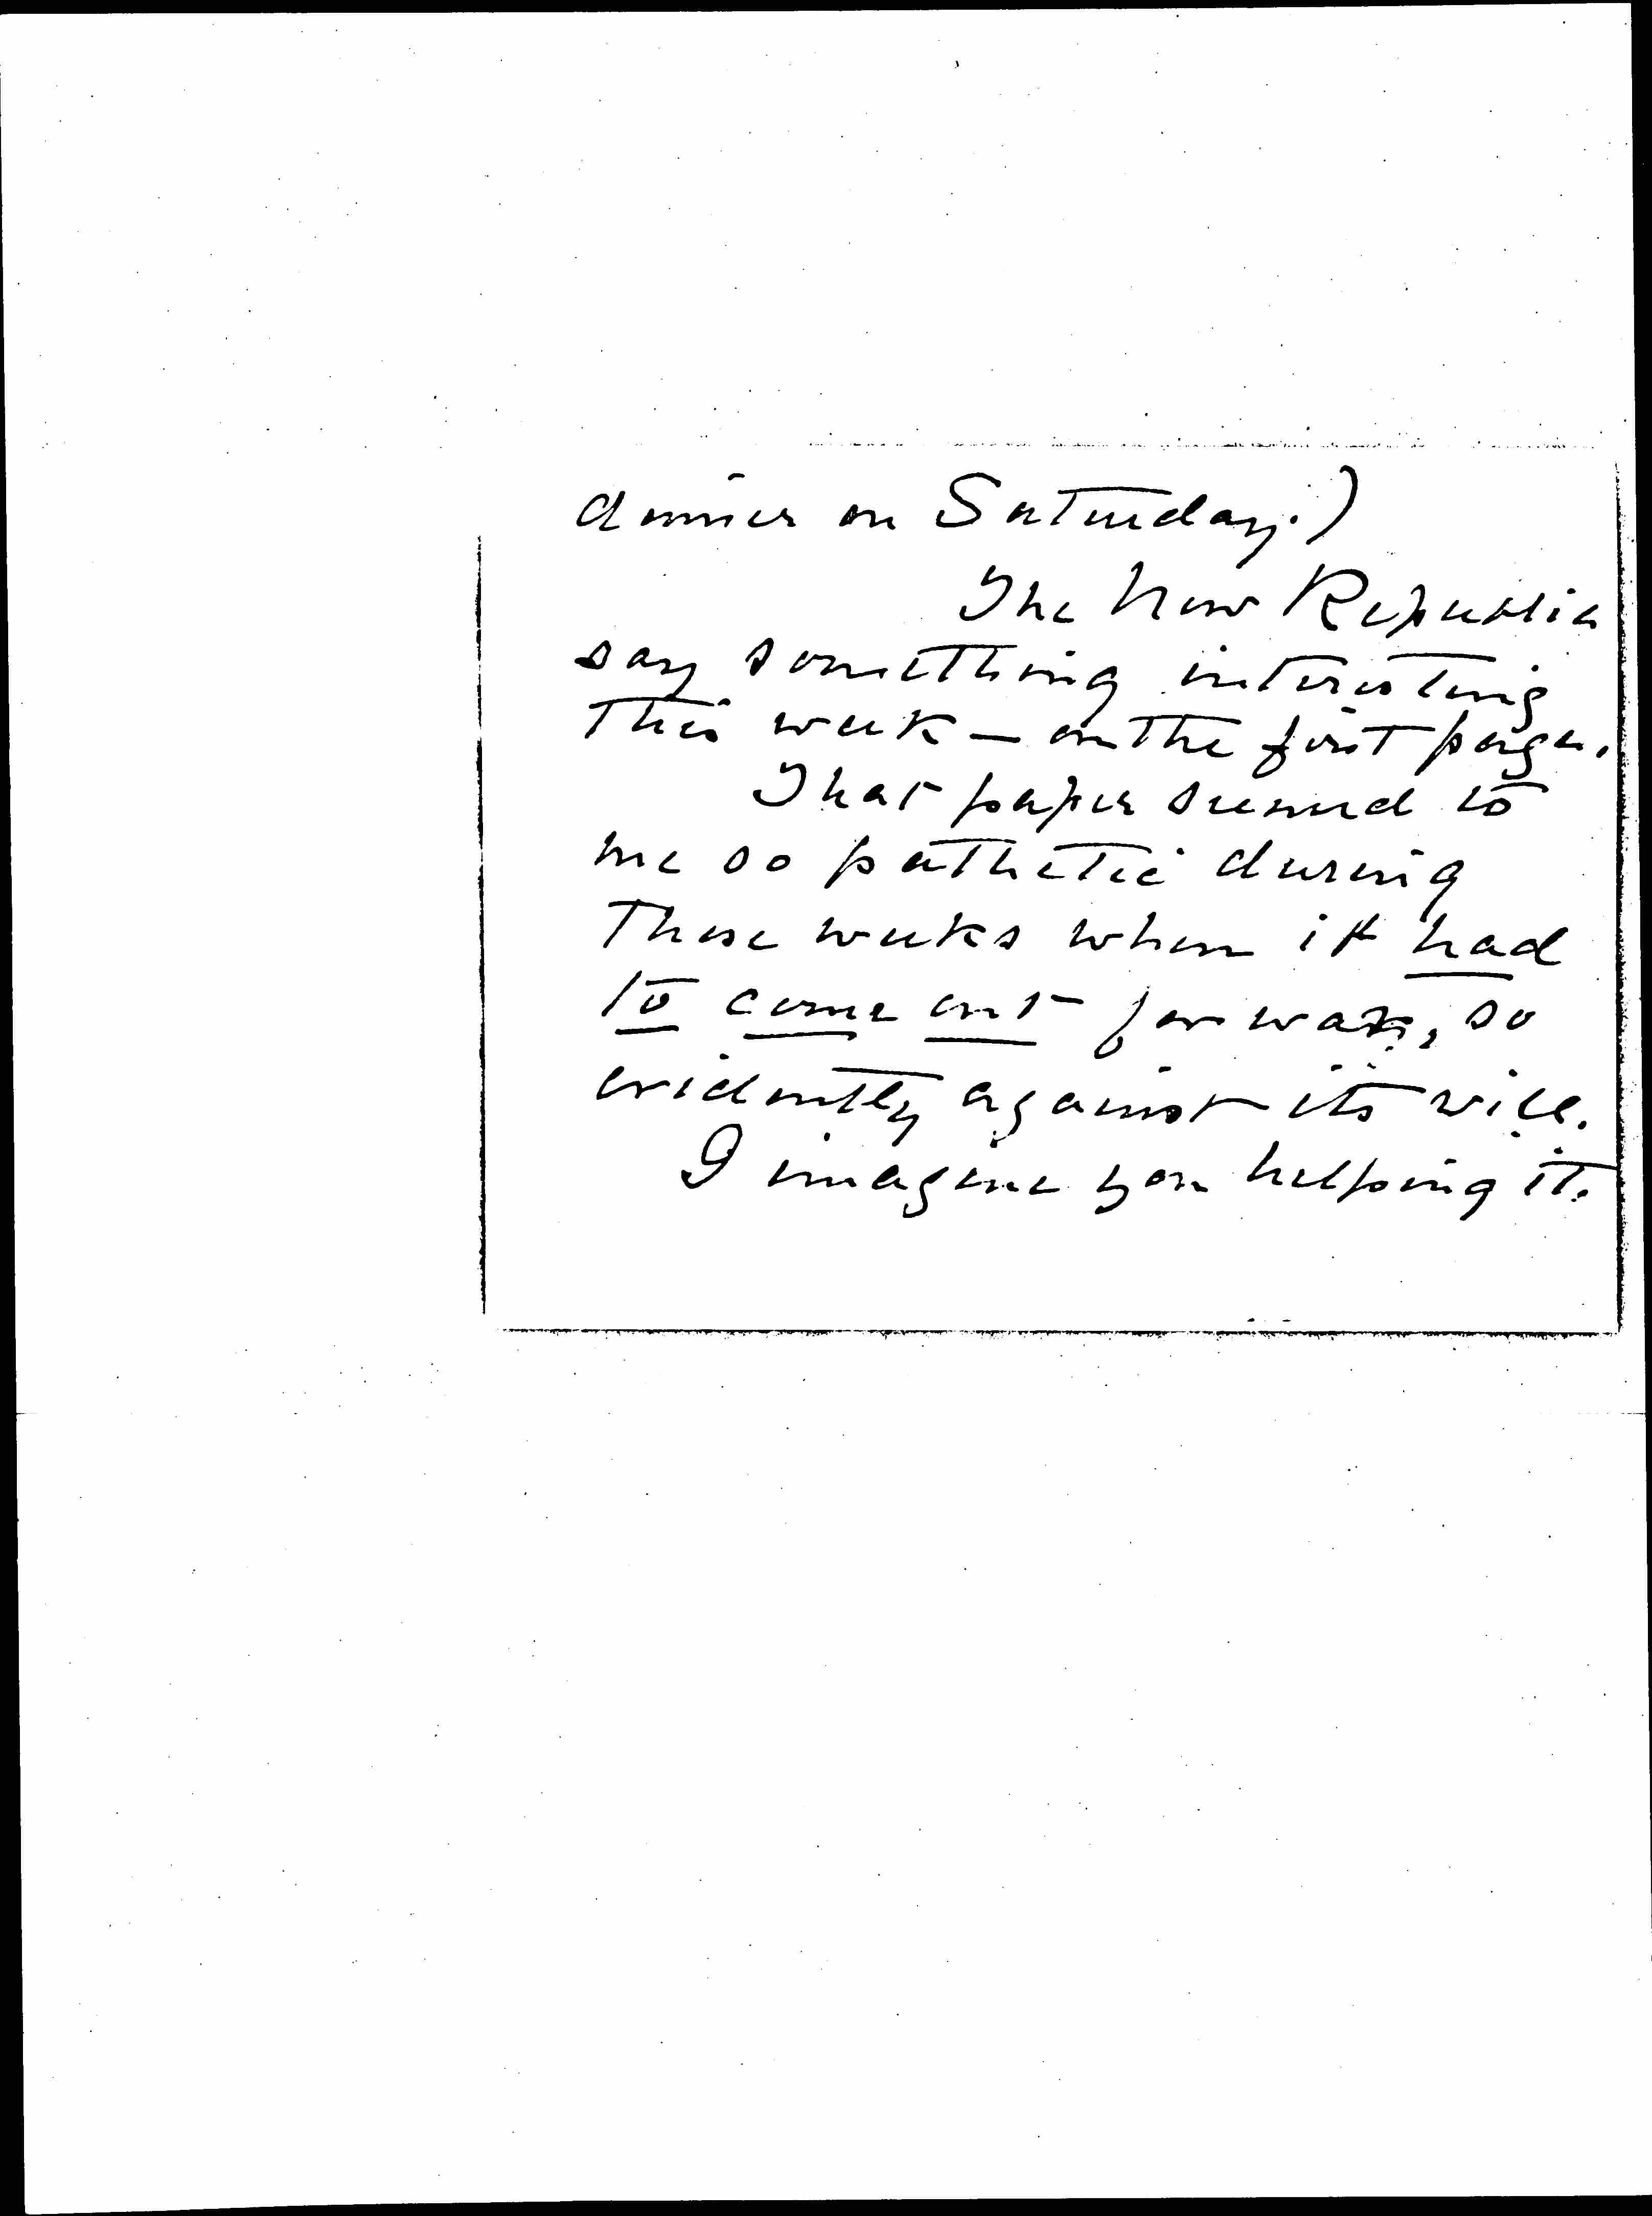 dinner on Saturday.)
The New Republic
say something interesting
this week — on the first page.
That paper seemed to
me so pathetic during
those weeks when it had
to come out for war, so
evidently against its will.
I imagine you helping it.